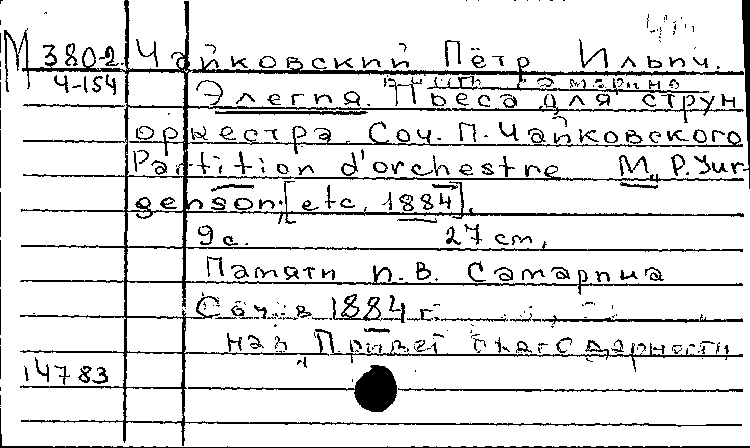 М 380-2 Чайковский Пётр Ильич.
Ч-154
Элегия. Пьеса для струн
оркестра. Соч. П. Чайковского
Partition d'orchestre M., P. Jur-
genson, [etc, 1884].
9 с. 27 cm.
Памяти И. В. Самарина
Соч. в 1884 г.
наз. "Привет благодарности
14783